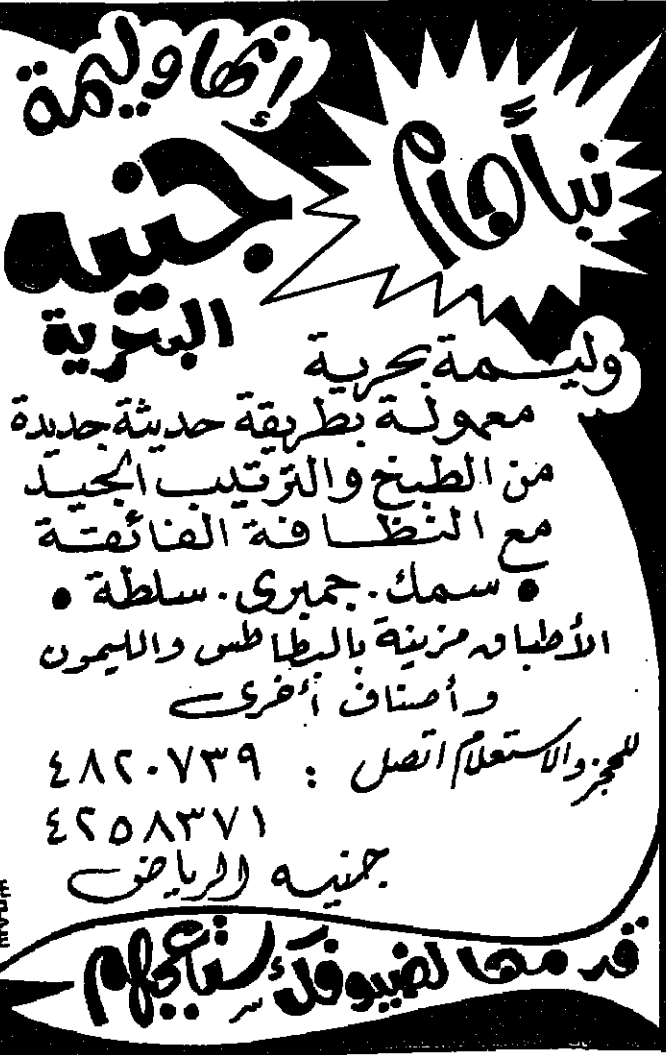 نبأ هام
إنها وليمة
جنيه
البحرية
وليمة بحرية
معمولة بطريقة حديثة جديدة
من الطبخ والترتيب الجيد
مع النظافة الفائقة
• سمك . جمبرى . سلطة •
الأطباق مزينة بالبطاطس والليمون
وأصناف أخرى
للحجز والاستعلام اتصل : ٤٨٢٠٧٣٩
٤٢٥٨٣٧١
جنيه الرياض
قدمها لضيوفك ستعجبهم